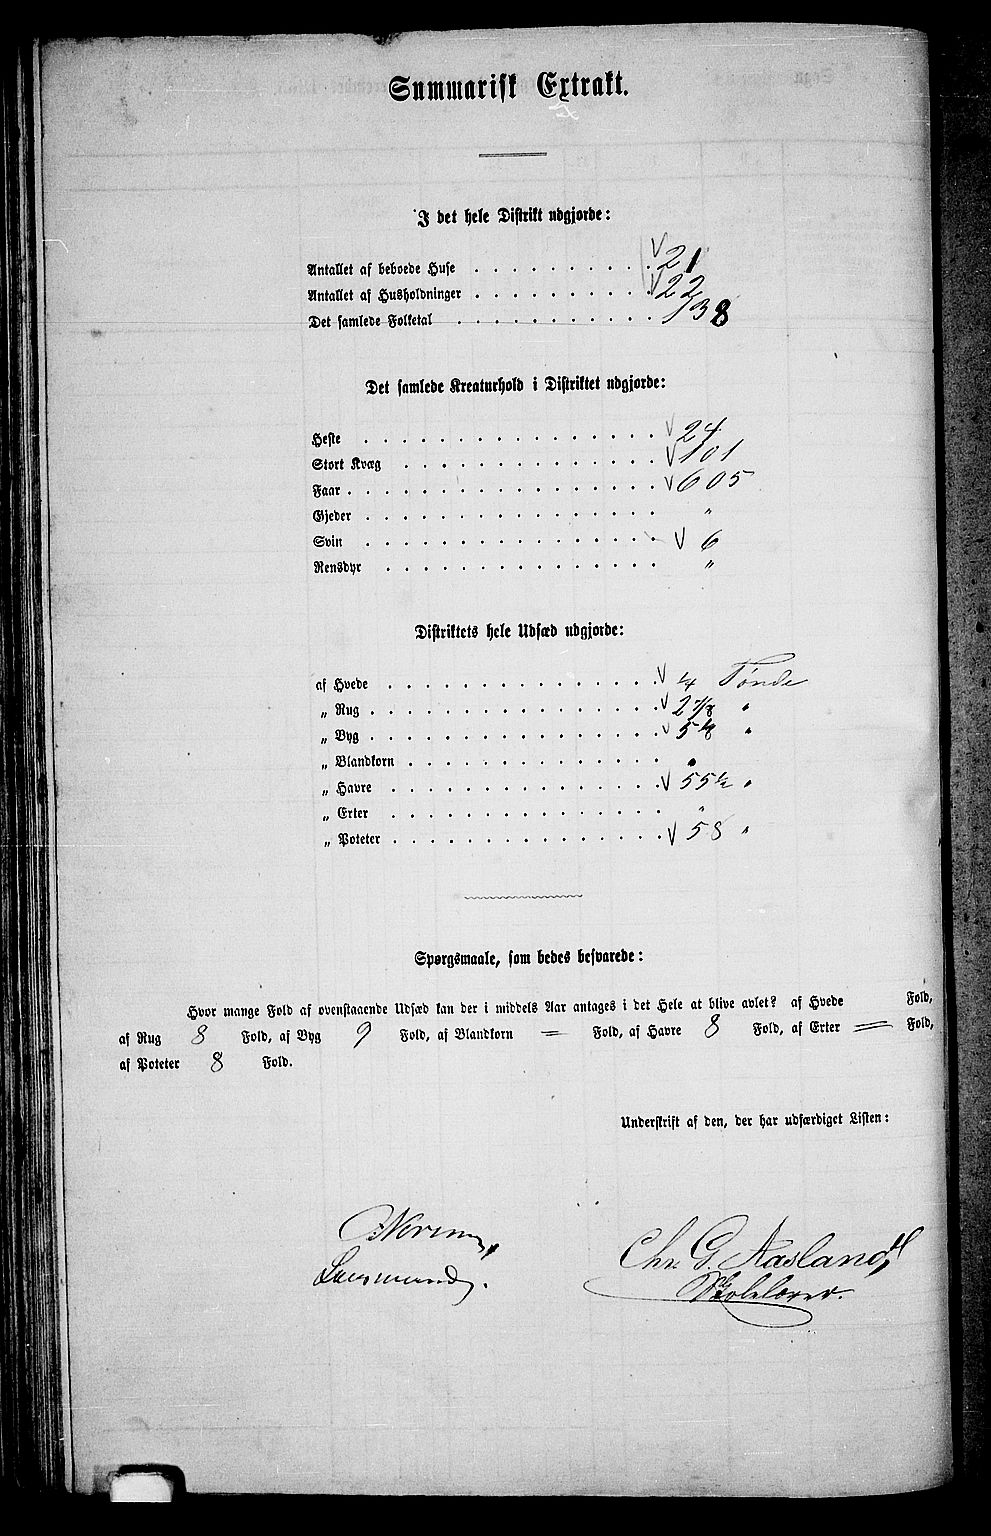 Summarisk Extrakt.
I det hele Distrikt udgjorde:
Antallet af beboede Huse . . . . . . . . . . 21
Antallet af Husholdninger . . . . . . . . . . 22
Det samlede Folketal . . . . . . . . . . . 138
Det samlede Kreaturhold i Distriktet udgjorde:
Heste . . . . . . . . . . . . . . . . 24
Stort Kvæg . . . . . . . . . . . . . . 101
Faar . . . . . . . . . . . . . . . . . 605
Gjeder . . . . . . . . . . . . . . . . "
Svin . . . . . . . . . . . . . . . . 6
Rensdyr . . . . . . . . . . . . . . . "
Distriktets hele Udsæd udgjorde:
af Hvede . . . . . . . . . . . . . . . 1/4 Tønde
„ Rug . . . . . . . . . . . . . . . . 2 7/8 "
„ Byg . . . . . . . . . . . . . . . . 5 1/8 "
„ Blandkorn . . . . . . . . . . . . . . "
„ Havre . . . . . . . . . . . . . . . 55 1/2 "
„ Erter . . . . . . . . . . . . . . . "
„ Poteter . . . . . . . . . . . . . . . 58 "
Spørgsmaale, som bedes besvarede:
Hvor mange Fold af ovenstaaende Udsæd kan der i middels Aar antages i det Hele at blive avlet? af Hvede Fold,
af Rug 8 Fold, af Byg 9 Fold, af Blandkorn = Fold, af Havre 8 Fold, af Erter = Fold,
af Poteter 8 Fold.
Underskrift af den, der har udfærdiget Listen:
Chr. G. Aasland,
Lensmand.
Skolelærer.